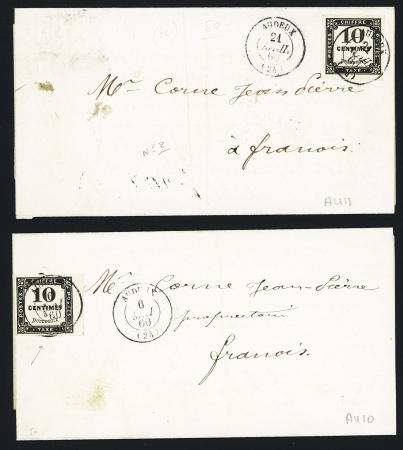 AUDEUX
21
(24)
CHIFFRE
POSTES
10
CENTIMES
TAXE
Mr Corne Jean Pierre
à franois.
N° 2
AU11
CHIFFRE
POSTES
10
CENTIMES
à
percevoir
TAXE
AUDEUX
6
60
(24)
Mr Corne Jean-Pierre
propriétaire
franois.
AU10